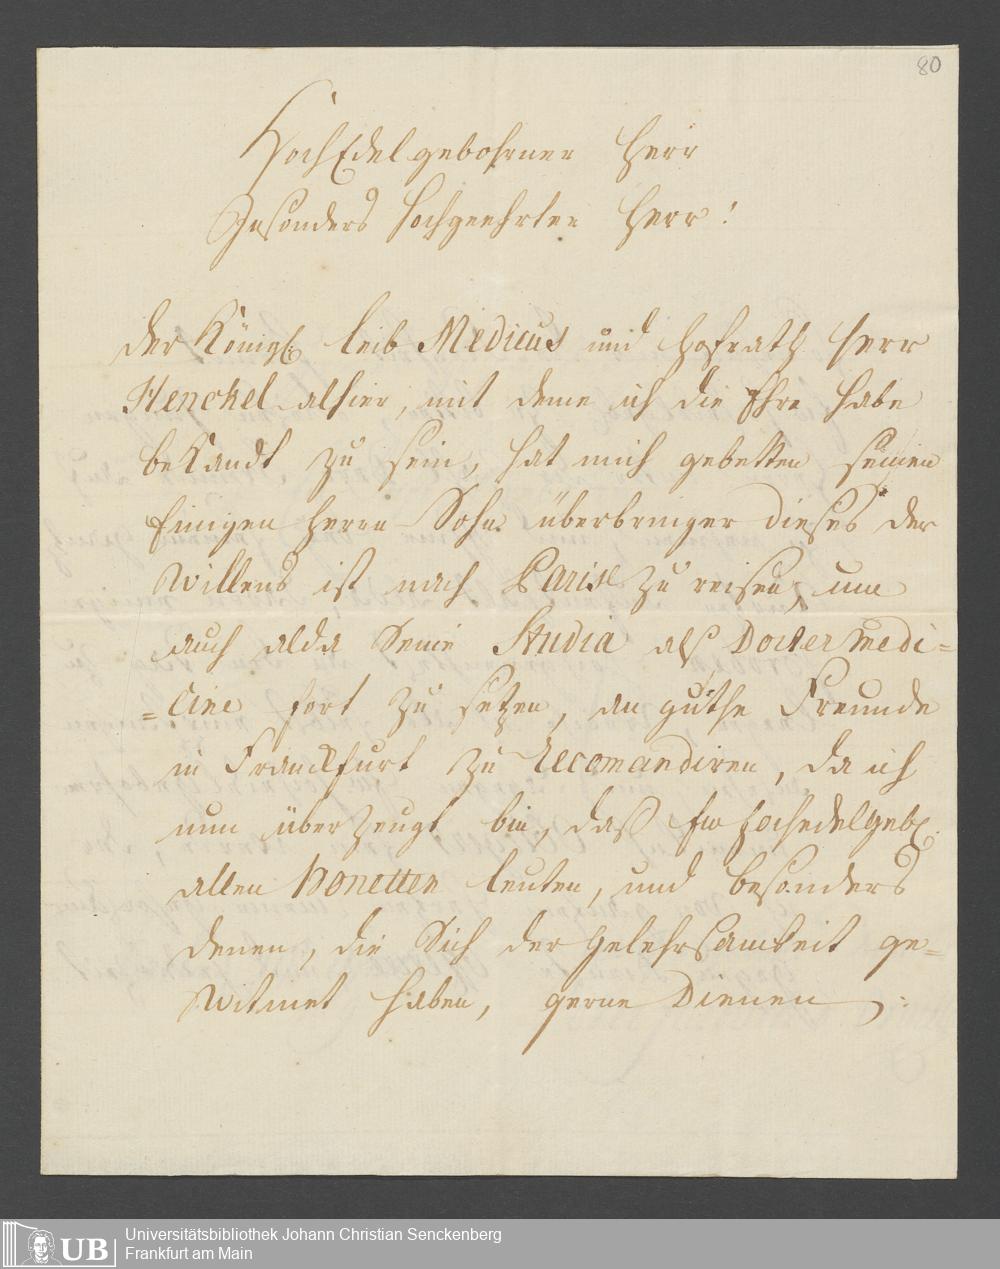 80
HochEdelgebohrner Herr
Besonders hochgeehrter Herr!
der Königl. leib Medicus und Hofrath Herr
Henckel alhier, mit deme ich die Ehre habe
bekandt zu sein, hat mich gebetten seinen
Einigen Herrn Sohn überbringer dieses der
Willens ist nach Paris zu reisen, um
auch alda Seine Studia alß Docter Medi=
=cine fort zu setzen, an guthe Freunde
in Franckfurt zu Recomandiren, da ich
nun überzeugt bin, daß Ew Hochedelgeb.
allen Honetten leuten, und besonders
denen, die Sich der Gelehrsamkeit ge=
Witmet haben, gerne Dienen
UB
Universitätsbibliothek Johann Christian Senckenberg
Frankfurt am Main